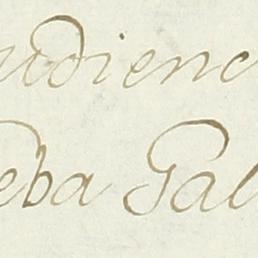 udienc
eba Gal